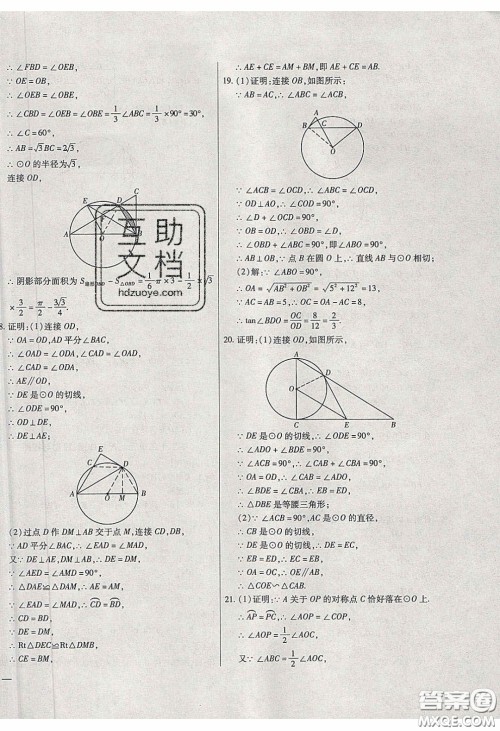 ∴ ∠FBD = ∠OEB,
∵ OE = OB,
∴ ∠OEB = ∠OBE,
∴ ∠CBD = ∠OEB = ∠OBE = 1/3 ∠ABC = 1/3 × 90° = 30°,
∴ ∠C = 60°,
∴ AB = √3 BC = 2√3,
∴ ⊙O 的半径为√3,
连接 OD,
∴ 阴影部分面积为 S - S△OBD = 1/6 π × 3 - 1/2 × √3
× 3/2 = π/2 - 3√3/4.
8. 证明:(1)连接 OD,
∵ OA = OD,AD 平分∠BAC,
∴ ∠OAD = ∠ODA,∠CAD = ∠OAD,
∴ ∠CAD = ∠ODA,
∴ AE∥OD,
∵ DE 是⊙O 的切线,
∴ ∠ODE = 90°,
∴ OD⊥DE,
∴ DE⊥AE;
E
C
D
A
O
M
B
(2)过点 D 作 DM⊥AB 交于点 M,连接 CD,DB,
∵ AD 平分∠BAC,∴ ∠DAE = ∠DAM,
又∵ DE⊥AE,DM⊥AB,
∴ ∠AED = ∠AMD = 90°,
∴ △DAE≌△DAM,∴ AE = AM,
∵ ∠EAD = ∠MAD,∴ CD = BD,
∴ CD = BD,
∵ DE = DM,
∴ Rt△DEC≌Rt△DMB,
∴ CE = BM,
∴ AE + CE = AM + BM,即 AE + CE = AB.
19. (1)证明:连接 OB,如图所示:
∵ AB = AC,∴ ∠ABC = ∠ACB,
A
B
C
D
O
∵ ∠ACB = ∠OCD,∴ ∠ABC = ∠OCD,
∵ OD⊥AO,∴ ∠COD = 90°,
∴ ∠D + ∠OCD = 90°,
∵ OB = OD,∴ ∠OBD = ∠D,
∴ ∠OBD + ∠ABC = 90°,即∠ABO = 90°,
∴ AB⊥OB,∵ 点 B 在圆 O 上,∴ 直线 AB 与⊙O 相切;
(2)解:∵ ∠ABO = 90°,
∴ OA = √AB² + OB² = √5² + 12² = 13,
∵ AC = AB = 5,∴ OC = OA - AC = 8,
∴ tan∠BDO = OC/OD = 8/12 = 2/3.
20. 证明:(1)连接 OD,如图所示,
A
D
O
C
E
B
∵ DE 是⊙O 的切线,∴ ∠ODE = 90°,
∴ ∠ADO + ∠BDE = 90°,
∵ ∠ACB = 90°,∴ ∠CAB + ∠CBA = 90°,
∵ OA = OD,∴ ∠CAB = ∠ADO,
∴ ∠BDE = ∠CBA,∴ EB = ED,
∴ △EBD 是等腰三角形;
(2)∵ ∠ACB = 90°,AC 是⊙O 的直径,
∴ CB 是⊙O 的切线,
∵ DE 是⊙O 的切线,∴ DE = EC,
∵ EB = ED,∴ EC = EB,
∵ OA = OC,∴ OE∥AB,
∴ △COE∽△CAB.
21. (1)证明:∵ A 关于 OP 的对称点 C 恰好落在⊙O 上.
∴ AP = PC,∴ ∠AOP = ∠COP,
∴ ∠AOP = 1/2 ∠AOC,
又∵ ∠ABC = 1/2 ∠AOC,
互助文档
hdzuoye.com
答案圈
MXQE.COM